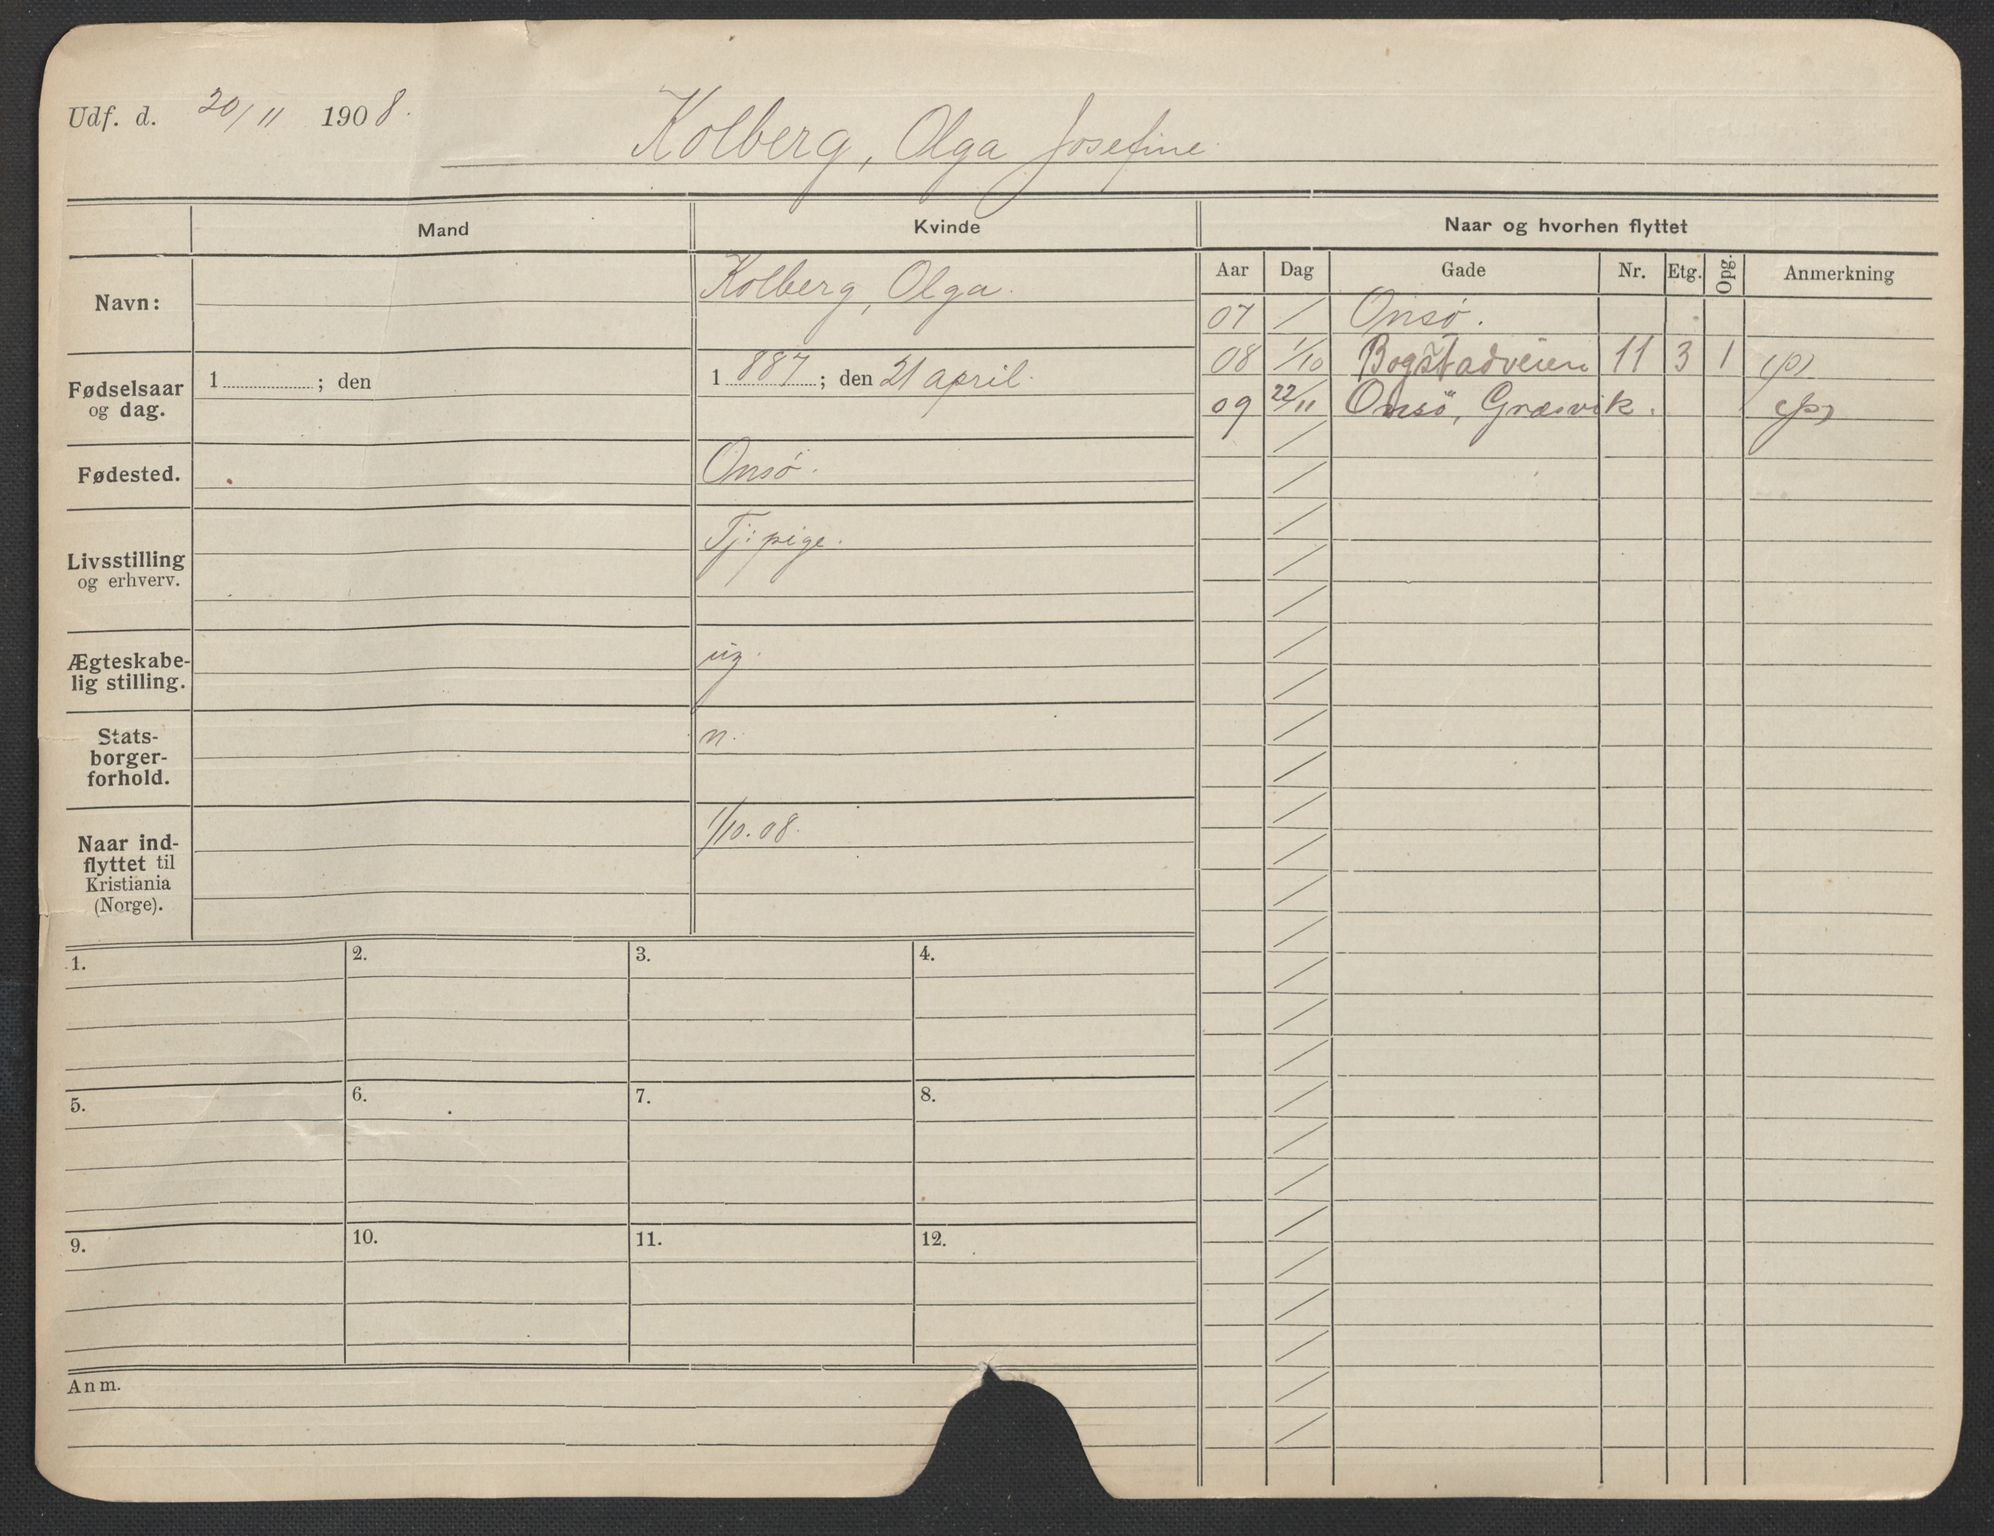 Udf. d. 20/11 1908.
Kolberg, Olga Josefine.
Mand
Kvinde
Naar og hvorhen flyttet
Aar Dag Gade Nr. Etg. Opg. Anmerkning
Navn:
Kolberg, Olga.
Fødselsaar
og dag.
1 ; den
1 887 ; den 21 april.
Fødested.
Onsö.
Livsstilling
og erhverv.
Tj: pige.
Ægteskabe-
lig stilling.
ug.
Stats-
borger-
forhold.
n.
Naar ind-
flyttet til
Kristiania
(Norge).
1/10.08.
07 / Onsö.
08 1/10 Bogstadveien 11 3 1 (p)
09 22/11 Onsö, Græsvik. (p)
1.
2.
3.
4.
5.
6.
7.
8.
9.
10.
11.
12.
Anm.